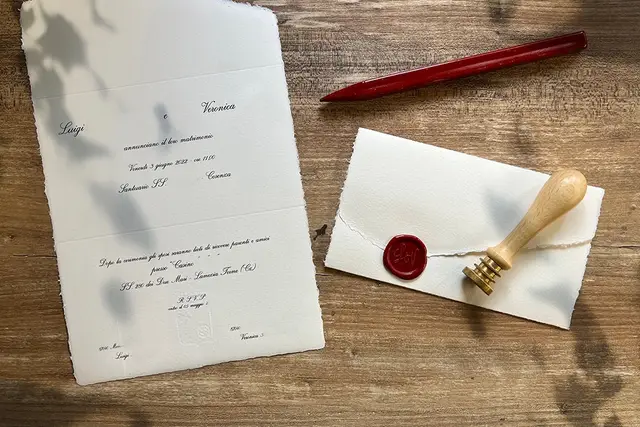 Luigi e Veronica
annunciano il loro matrimonio
Venerdì 3 giugno 2022 - ore 11.00
Santuario SS. Cosenza
Dopo la cerimonia gli sposi saranno lieti di ricevere parenti e amici
presso "Casino
SS 280 dei Due Mari - Lamezia Terme (Cz)
R.S.V.P.
entro il 15 maggio
Luigi
Veronica